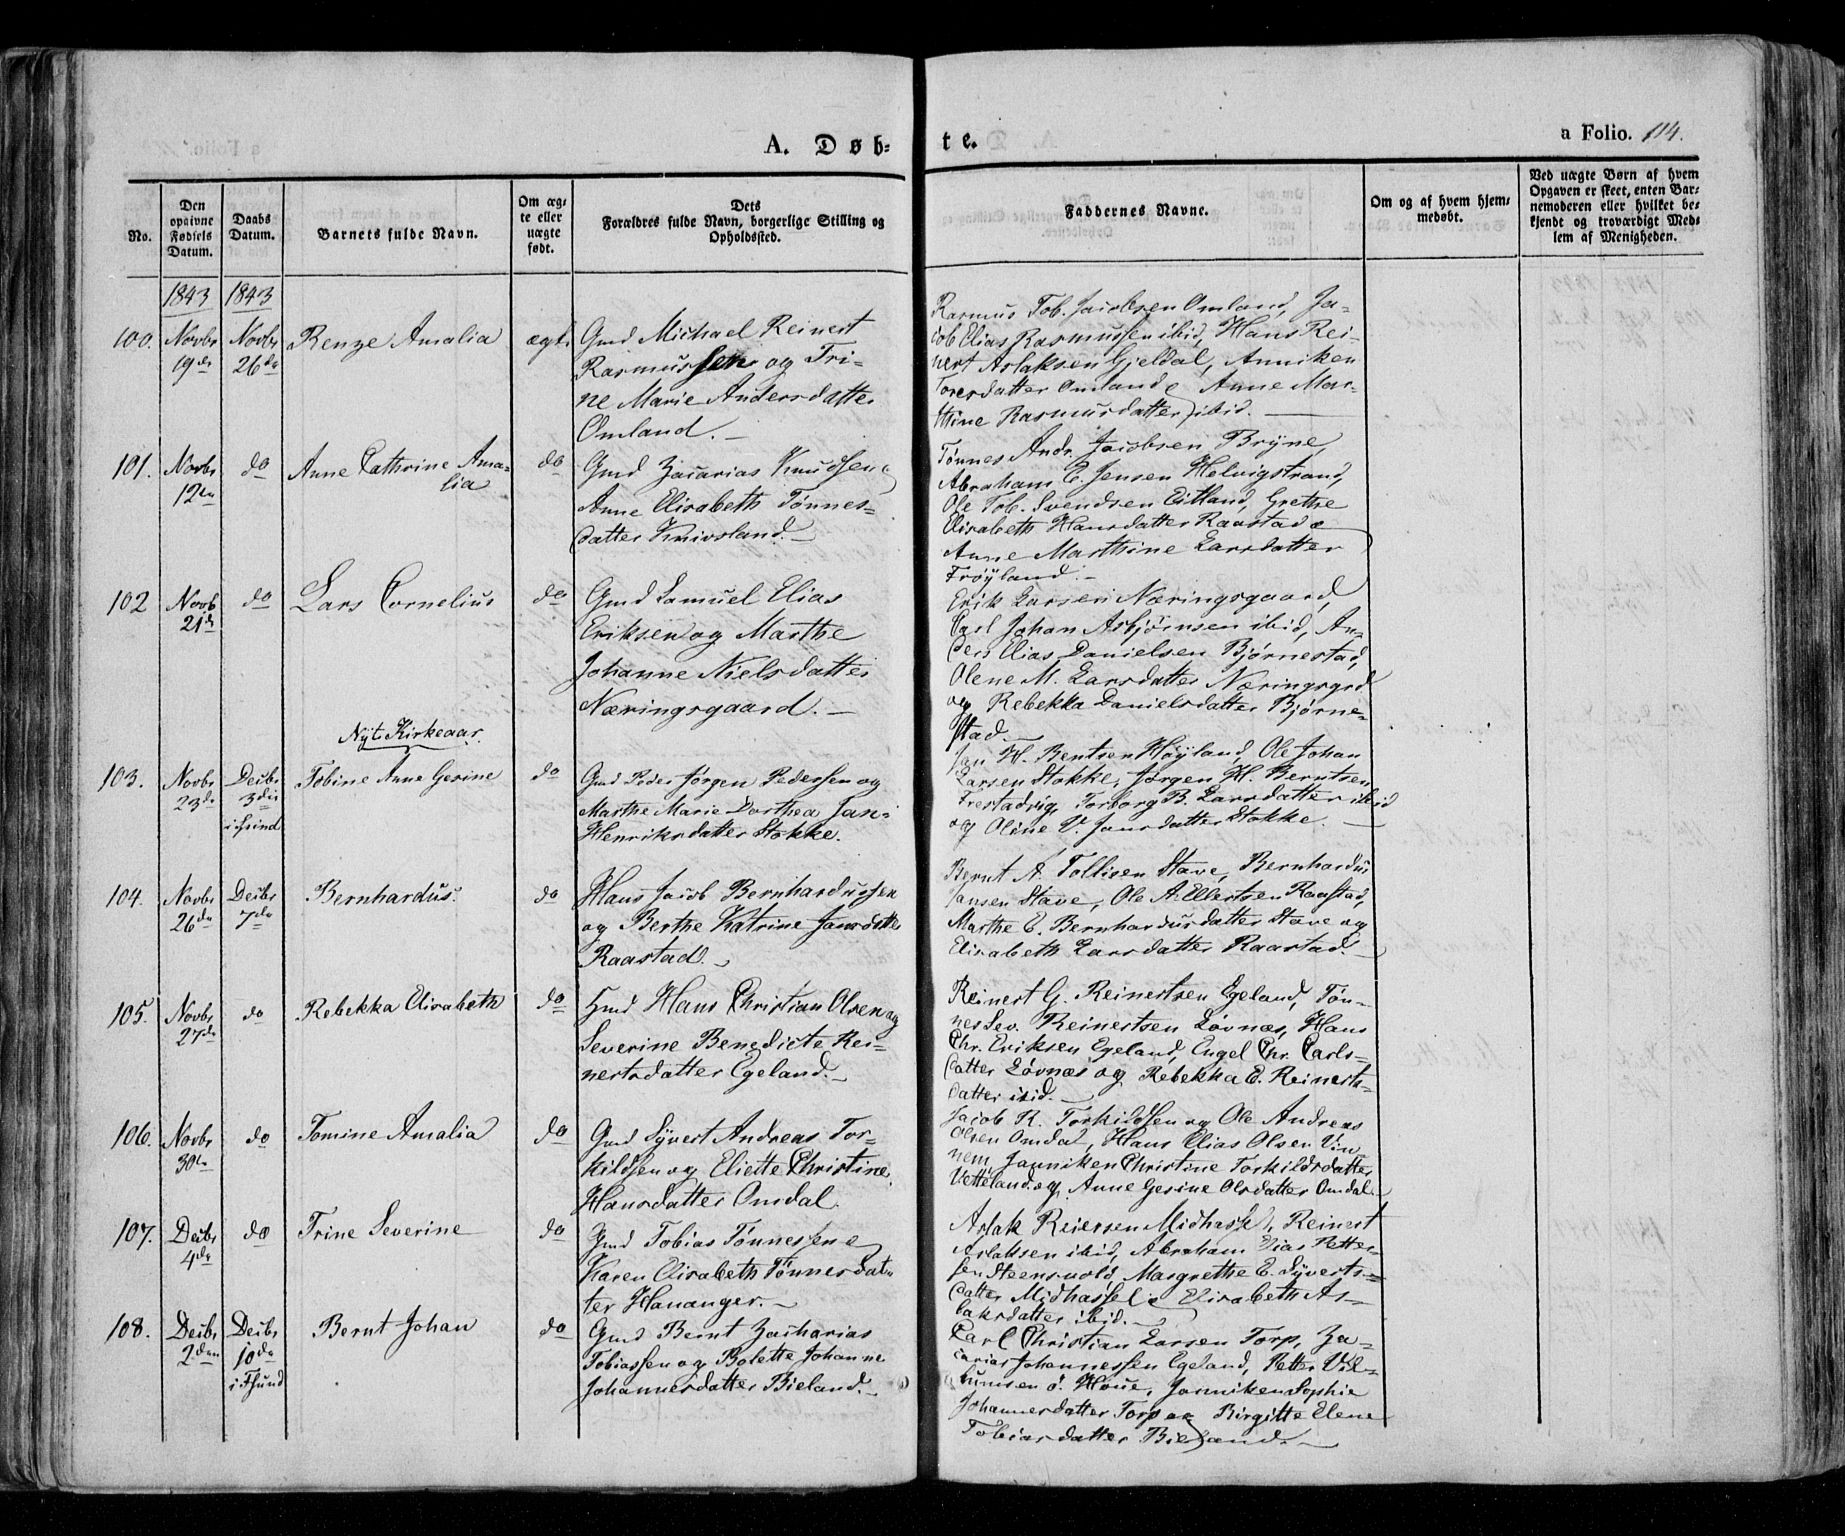 A. Døb-
te.
a Folio. 114.
No.
Den
opgivne
Fødsels
Datum.
Daabs
Datum.
Barnets fulde Navn.
Om æg-
te eller
uægte
født.
Dets
Forældres fulde Navn, borgerlige Stilling og
Opholdssted.
Faddernes Navne.
Om og af hvem hjem-
medøbt.
Ved uægte Børn af hvem
Opgaven er skeet, enten Bar-
nemoderen eller hvilket be-
kjendt og troværdigt Med-
lem af Menigheden.
1843 1843
100. Novbr 19de
Novbr 26de
Renze Amalia
ægte
Gmd Michael Reinert
Rasmussen og Tri-
ne Marie Andersdatter
Omland.
Rasmus Tob. Jacobsen Omland, Ja-
cob Elias Rasmussen ibid, Hans Rei-
nert Aslaksen Gjeldal, Anniken
Toresdatter Omland & Anne Mar-
thine Rasmusdatter ibid.
101. Novbr 12te
do
Anne Cathrine Ama-
lia
do
Gmd Zacarias Knudsen &
Anne Elisabeth Tønnes-
datter Knivsland.
Tønnes Andr. Jacobsen Bryne,
Abraham C. Jensen Helvigstrand,
Ole Tob. Svendsen Eitland, Grethe
Elisabeth Hansdatter Raastad &
Anne Marthine Larsdatter
Frøyland.
102 Novb 21de
do
Lars Cornelius
do
Gmd Samuel Elias
Eriksen og Marthe
Johanne Nielsdatter
Næringsgaard.
Erik Larsen Næringsgaard,
Carl Johan Asbjørnsen ibid, An-
ders Elias Danielsen Bjørnestad,
Olene M. Larsdatter Næringsgrd
og Rebekka Danielsdatter Bjørne-
stad.
Nyt Kirkeaar.
103. Novbr 23de
Decbr 3die
Tobine Anne Gesine
do
Gmd Peder Jørgen Pedersen og
Marthe Marie Dorthea Jan-
Henriksdatter Stokke.
Jan H. Bentsen Høyland, Ole Johan
Larsen Stokke, Jørgen H. Berntsen
Torborg B. Larsdatter ibid
og Oline V. Jansdatter Stokke.
104. Novbr 26de
Decbr 7de
Bernhardus.
do
Hans Jacob Bernhardussen
og Berthe Katrine Jansdatter
Raastad.
Bernt A. Tollisen Stave, Bernhardus
Jansen Stave, Ole A. Ellertsen Raastad,
Marthe E. Bernhardusdatter Stave og
Elisabeth Larsdatter Raastad.
105. Novbr 27de
do
Rebekka Elisabeth
do
Hmd Hans Christian Olsen og
Severine Benedicte Rei-
nertsdatter Egeland.
Reinert G. Reinertsen Egeland, Tøn-
nes Sev. Reinertsen Løvnæs, Hans
Chr. Eriksen Egeland, Engel Chr. Carls-
datter Løvnæs og Rebekka E. Reinerts-
datter ibid.
106. Novbr 30te
do
Tomine Amalia
do
Gmd Syvert Andreas Tor-
kildsen og Eliette Christine
Hansdatter Omdal.
Jacob R. Torkildsen og Ole Andreas
Olsen Omdal, Hans Elias Olsen Vin-
nem, Janniken Christine Torkildsdatter
Vetteland og Anne Gesine Olsdatter Omdal.
107. Decbr 4de
do
Trine Severine
do
Gmd Tobias Tønnessen &
Karen Elisabeth Tønnesdat-
ter Hananger.
Aslak Reiersen Midhassel, Reinert
Aslaksen ibid, Abraham Elias Petter-
sen Steensvold, Margrethe E. Syverts-
datter Midhassel & Elisabeth As-
laksdatter ibid.
108. Decbr 2den
Decbr 10de
i Fsund
Bernt Johan
do
Gmd Bernt Zacharias
Tobiassen og Bolette Johanne
Johannesdatter Bieland.
Carl Christian Larsen Torp, Za-
carias Johannessen Egeland, Petter Vil-
Houe, Janniken Sophie
Johannesdatter Torp og Birgitte Elene
Tobiasdatter Bieland.